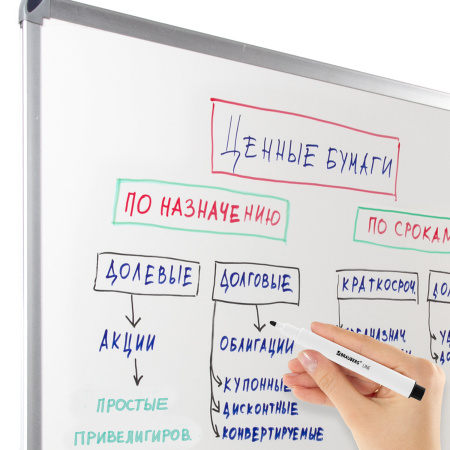 ЦЕННЫЕ БУМАГИ
ПО НАЗНАЧЕНИЮ
ПО СРОКАМ
ДОЛЕВЫЕ
ДОЛГОВЫЕ
КРАТКОСРОЧ
АКЦИИ
ОБЛИГАЦИИ
КУПОННЫЕ
ДИСКОНТНЫЕ
КОНВЕРТИРУЕМЫЕ
ПРОСТЫЕ
ПРИВЕЛИГИРОВ
BRAUBERG LINE